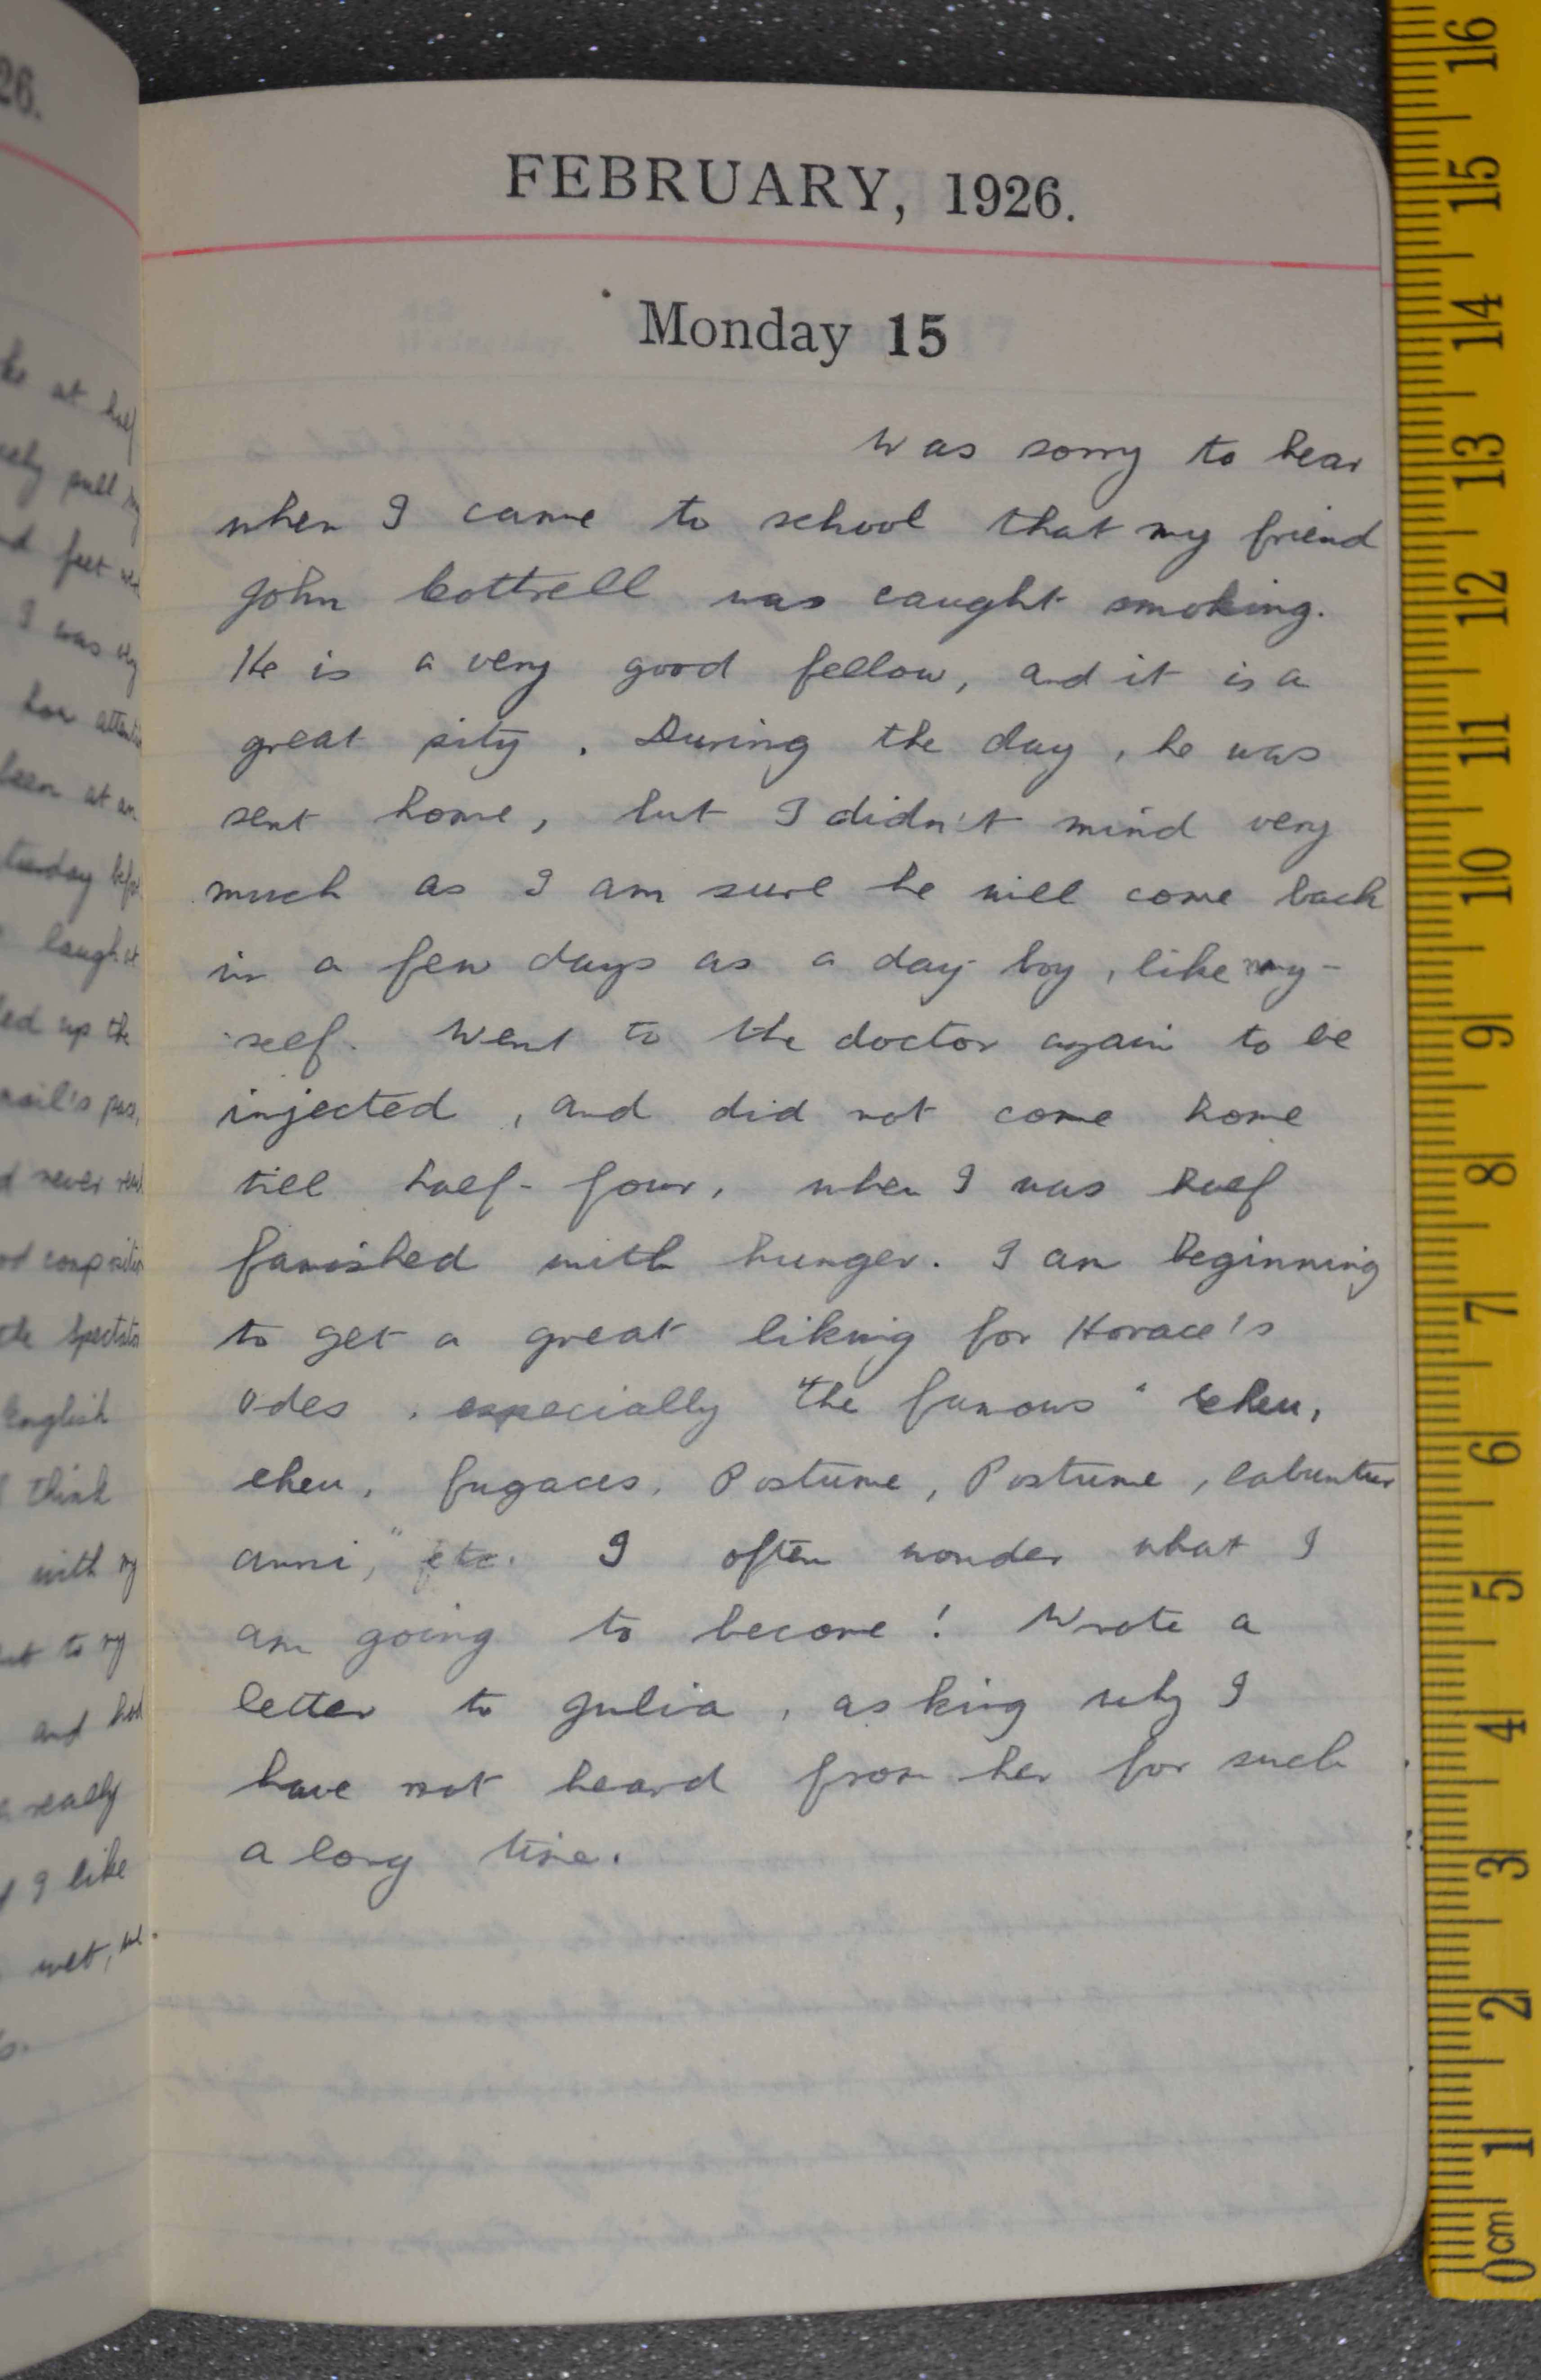 FEBRUARY, 1926.
Monday 15
Was sorry to hear
when I came to school that my friend
John Cottrell was caught smoking.
He is a very good fellow, and it is a
great pity. During the day, he was
sent home, but I didn't mind very
much as I am sure he will come back
in a few days as a day boy, like my-
self. Went to the doctor again to be
injected, and did not come home
till half-four, when I was half
famished with hunger. I am beginning
to get a great liking for Horace's
Odes, especially "the famous "Eheu,
eheu, fugaces, Postume, Postume, labuntur
anni," etc. I often wonder what I
am going to become! Wrote a
letter to Julia, asking why I
have not heard from her for such
a long time.
26.
at half
pull my
feet
I was
at an
laugh at
up the
never
English
think
with my
to my
and had
really
I like
wet,
16
15
14
13
12
11
10
9
8
7
6
5
4
3
2
1
0cm